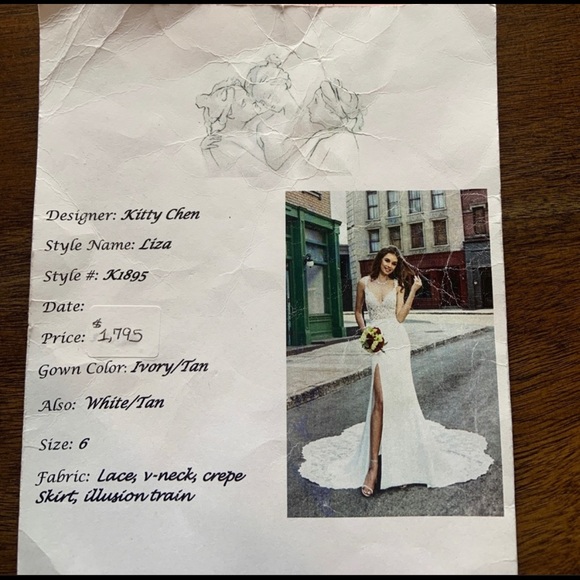 Designer: Kitty Chen
Style Name: Liza
Style #: K1895
Date:
Price: $1,795
Gown Color: Ivory/Tan
Also: White/Tan
Size: 6
Fabric: Lace, v-neck, crepe
Skirt, illusion train